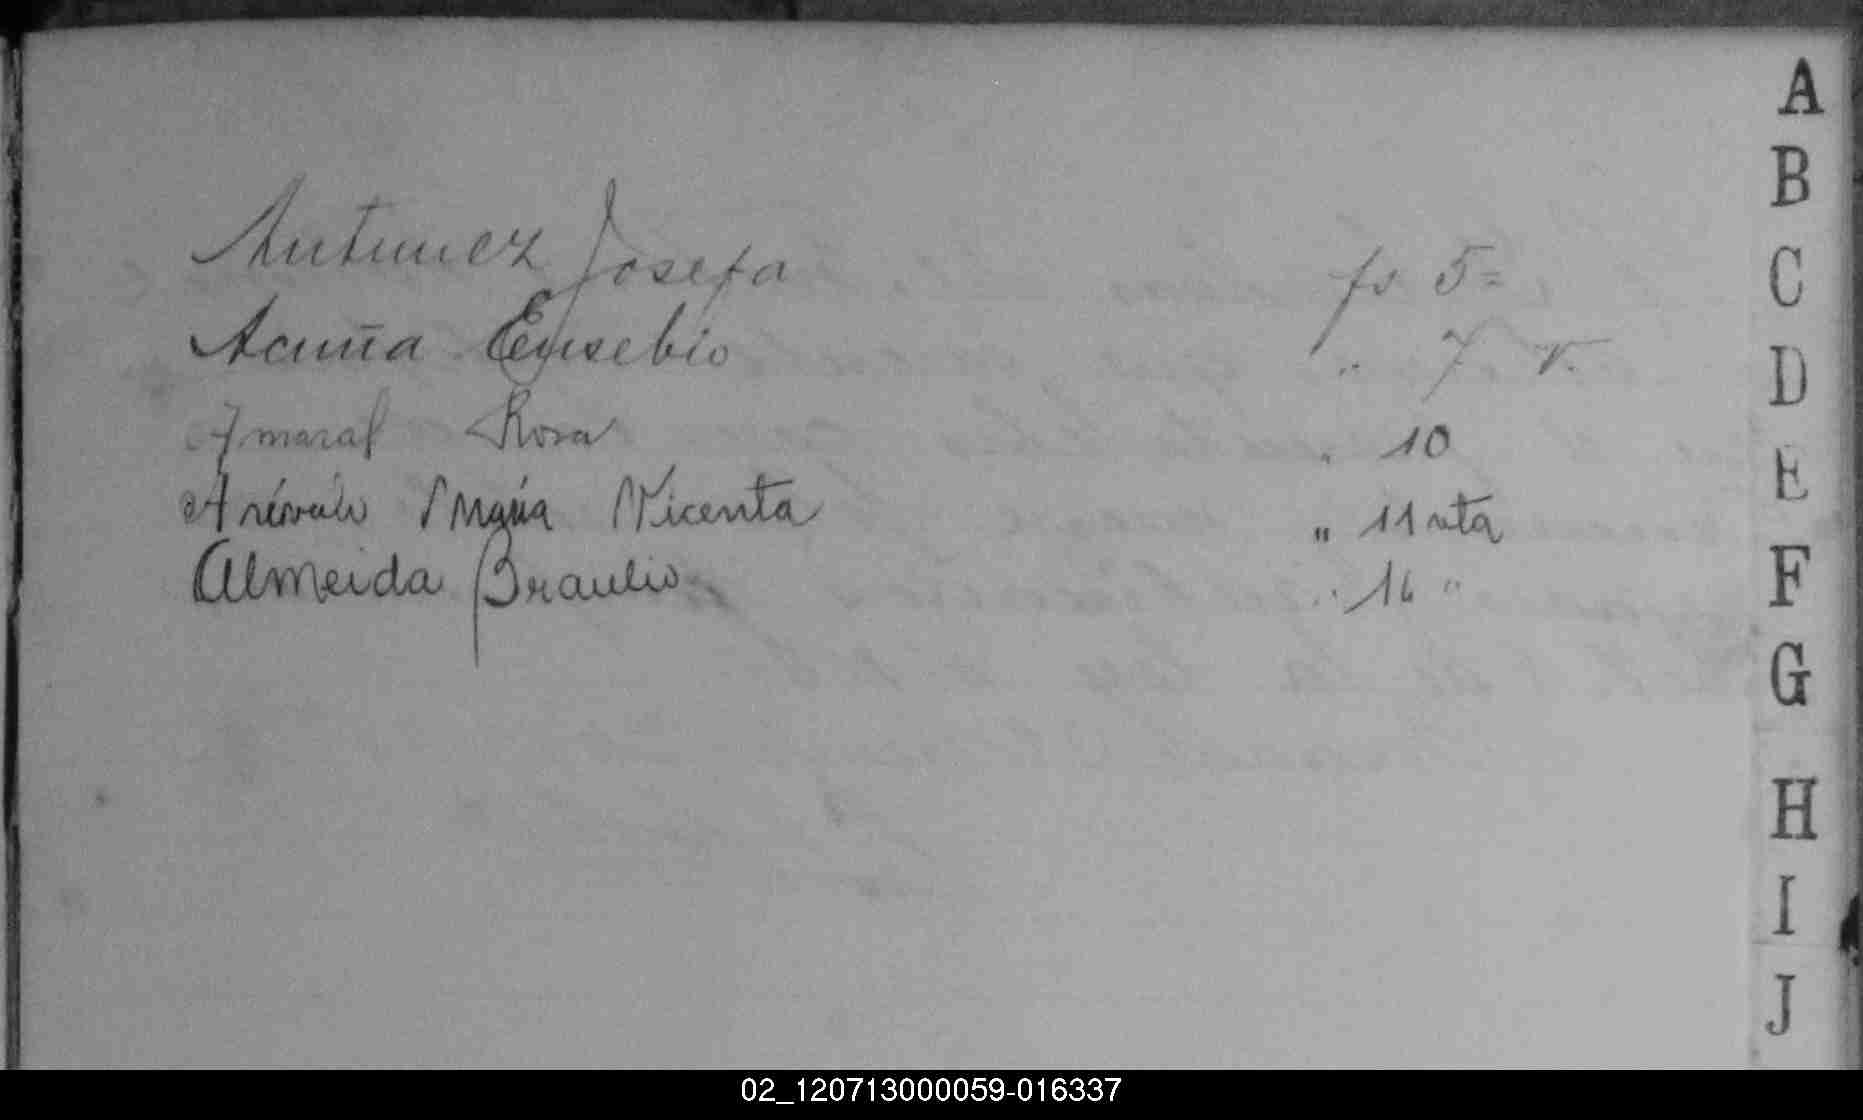 A
B
C
D
E
F
G
H
I
J
Antunez Josefa fs 5=
Acuña Eusebio " 7 v.
Amaral Rosa " 10
Arévalo María Vicenta " 11 vta
Almeida Braulio " 16 "
02_120713000059-016337